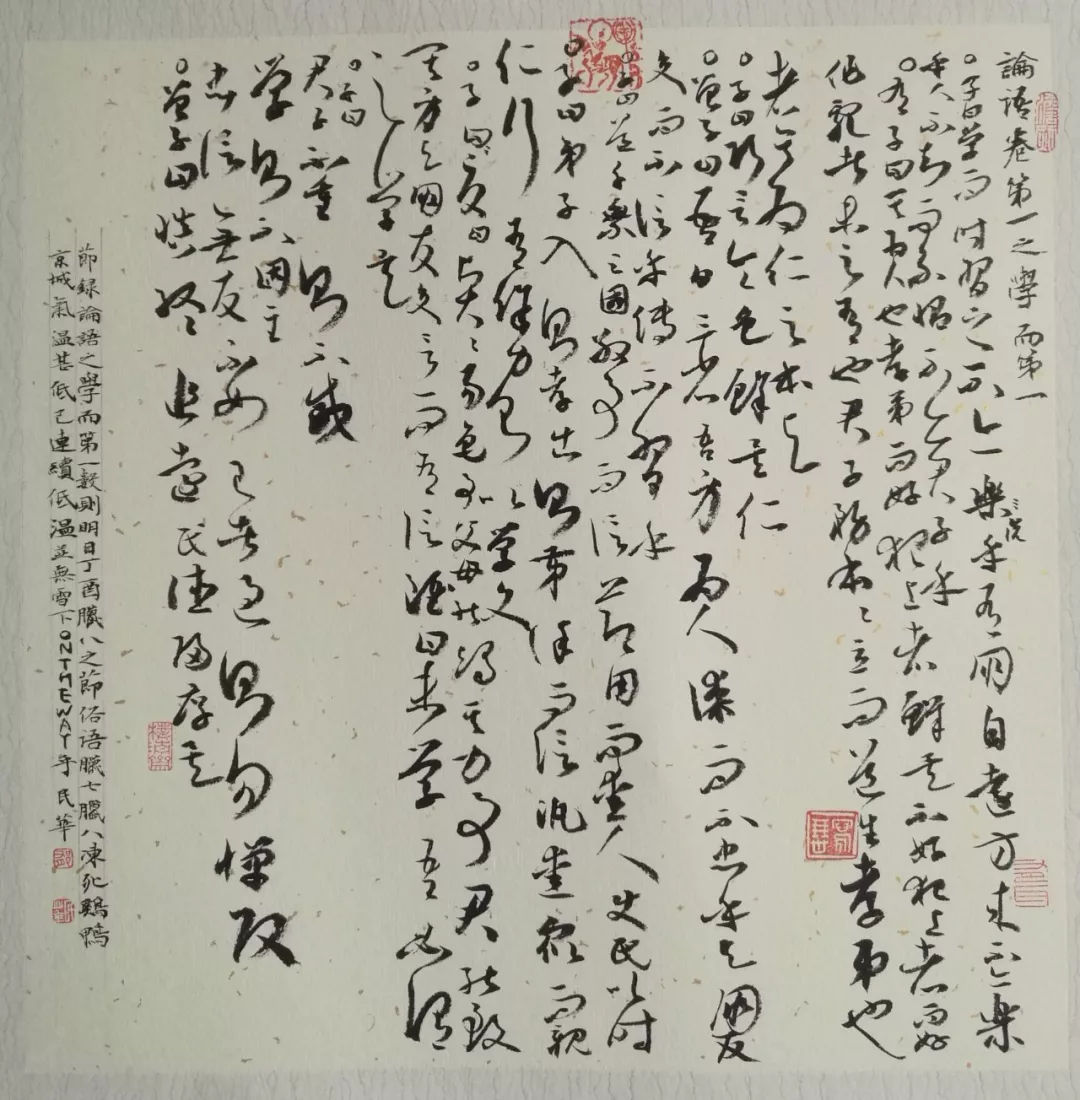 論語卷第一之學而第一
。子曰學而時習之不亦樂乎有朋自遠方来不亦樂
乎人不知而不愠不亦君子乎
。有子曰其為人也孝弟而好犯上者鮮矣不好犯上者而好
作亂者未之有也君子務本〻立而道生孝弟也
者其為仁之本与
。子曰巧言令色鮮矣仁
。曾子曰吾日三省吾身為人謀而不忠乎与朋友
交而不信乎傳不習乎
。子曰道千乘之國敬事而信節用而愛人使民以时
。子曰弟子入則孝出則弟謹而信汎愛衆而親
仁行有餘力則以學文
。子夏曰賢〻易色事父母能竭其力事君能致
其身与朋友交言而有信雖曰未学吾必謂
之学矣
。子曰
君子不重則不威
学則不固主
忠信無友不如己者過則勿憚改
。曾子曰慎終追遠民德歸厚矣
節録論語之學而第一數則明日丁酉臘八之節俗语臘七臘八凍死鷄鴨
京城氣温甚低已連續低温並無雪下ONTHEWAY 民華